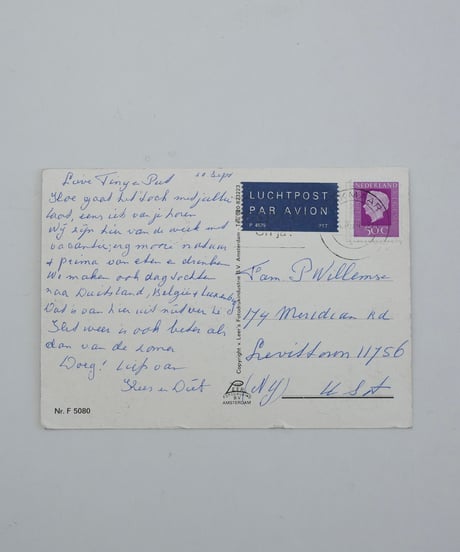 22 Sept
Lieve Tiny e Piet
Hoe gaat het toch met jullie
laat, eens iets van je horen
Wij zijn hier van de week met
vacantie, erg mooie natuur
+ prima van eten en drinken
We maken ook dagtochten
naar Duitsland, België + Luxemburg
Dat is van hier uit niet ver
Het weer is ook beter als
dan van de zomer
Doeg! Liefs van
Kees en Diet
Nr. F 5080
Copyright - Loer's Fotoindustrie B.V. Amsterdam
AMSTERDAM
LUCHTPOST
PAR AVION
P 4579 PTT
NEDERLAND
50 C
Fam P Willemse
174 Meridian Rd
Levittown 11756
(NY) USA